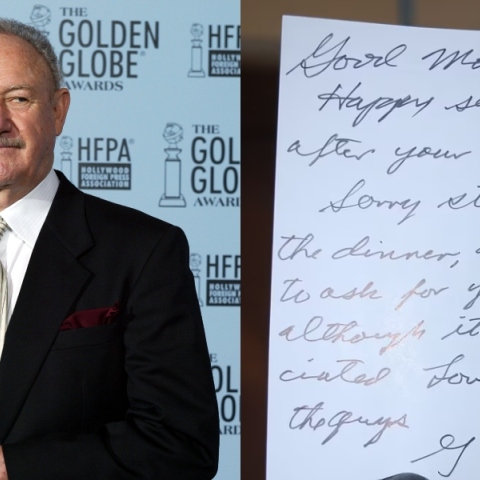 THE
GOLDEN
GLOBE®
AWARDS
HFPA
HOLLYWOOD
FOREIGN PRESS
ASSOCIATION
HFPA®
HOLLYWOOD
FOREIGN PRESS
ASSOCIATION
THE
GOL
GLO
AWAR
HFP
HOLLYW
FOREIGN
ASSOCIA
GOL
GLO
Good Mo
Happy se
after your
Sorry st
the dinner,
to ask for y
although it
ciated Lov
the guys
G